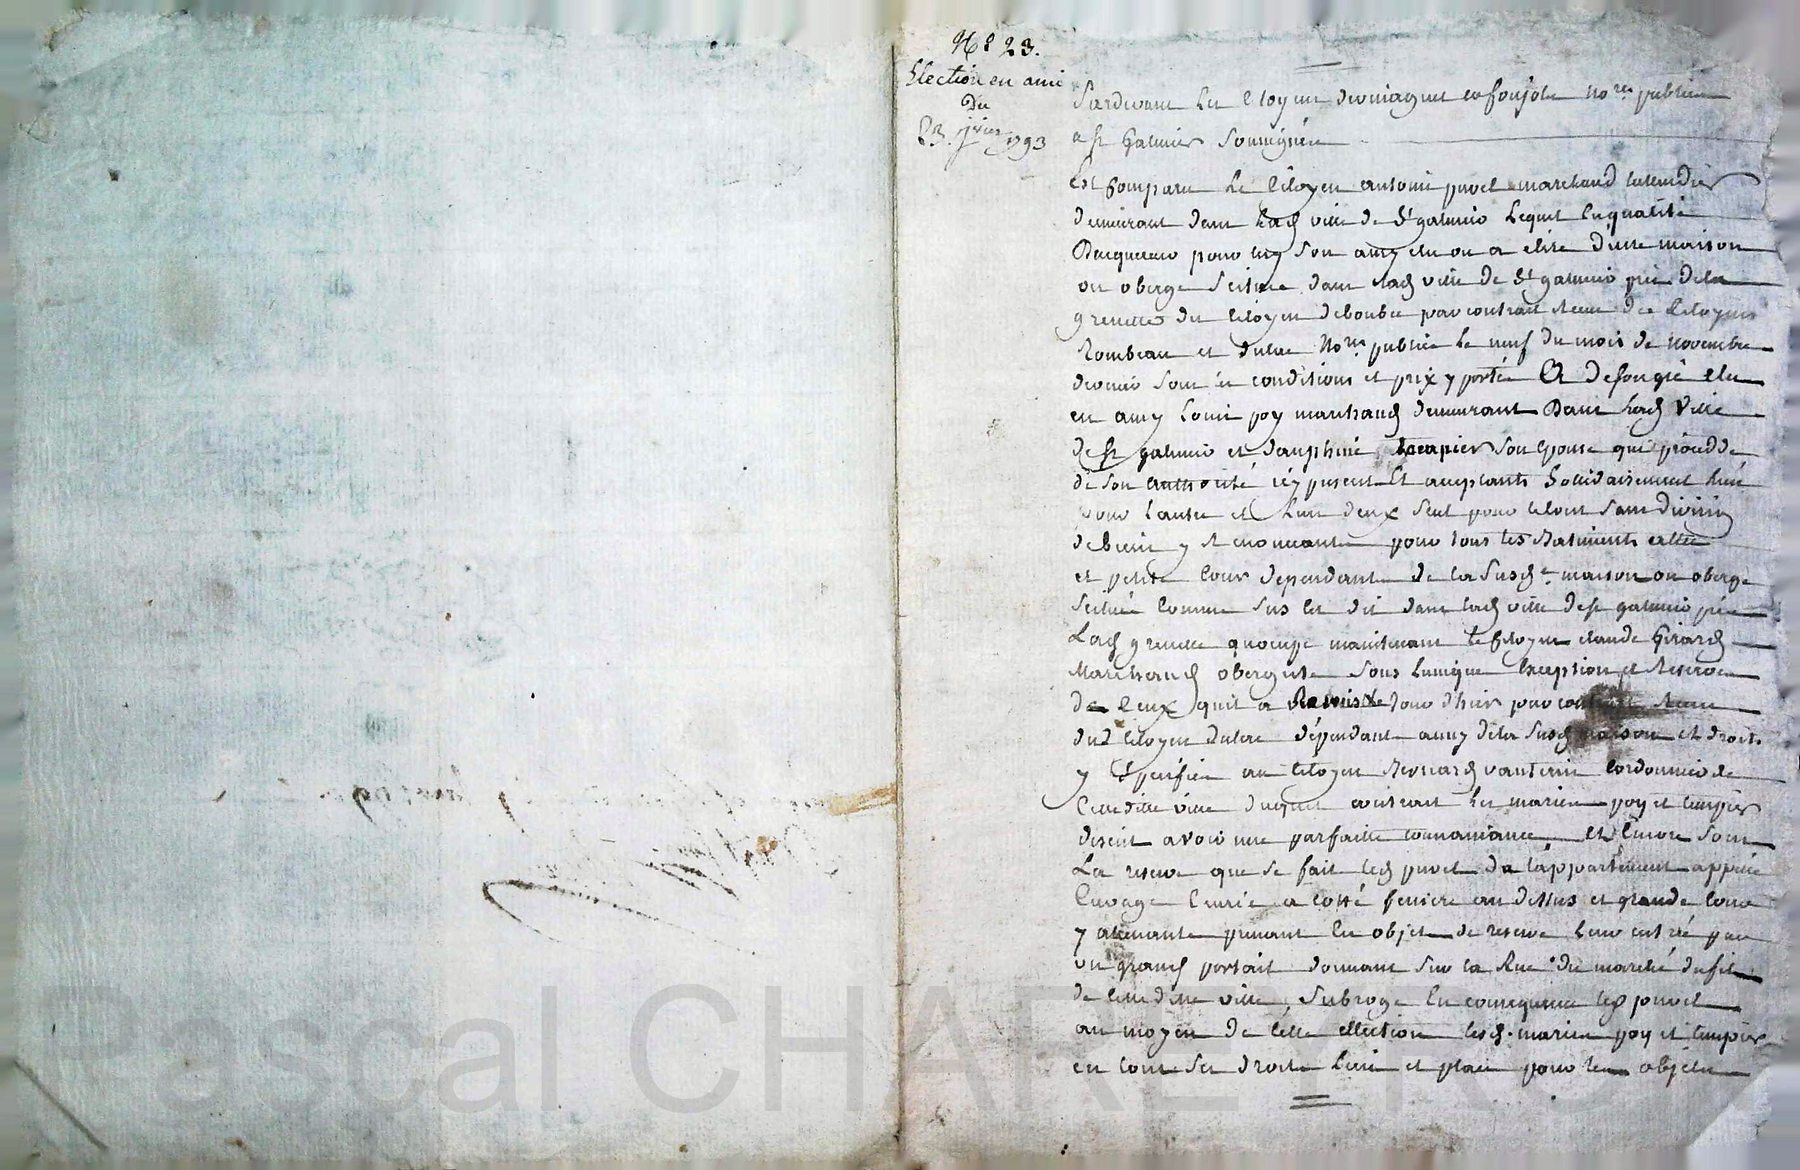 N° 23.
Election en ami
Du
23. jvier 1793
Pardevant les Citoyens no.res publics
a St Galmier soussignés
Est Comparu Le Citoyen antoine marchand
demeurant dans lad ville de St galmier Lequel En qualité
D'acquereur pour luy son amy elu ou a elire D'une maison
ou oberge scituée dans lad ville de St galmier près de la
grenette du Citoyen par contrat Receu des Citoyens
Rombeau et no.res publics Le neuf du mois de novembre
dernier sous les conditions et prix y portés A de son gré elu
en amy Louis poy marchand demeurant Dans Lad Ville
de St galmier et dauphiné son Epouse qui procede
de son authorité icy present Et acceptants Sollidairement L'un
pour L'autre et L'un d'eux seul pour le tout sans Division
de biens y Renonceants pour tous les Batiments
et petite Cour dependants de la susd.e maison ou oberge
scituée Comme sus est dit dans lad ville de St galmier près
Lad grenette qu'occupe maintenant le Citoyen claude Girard
Marchand obergiste sous L'unique Exception et Reserve
de Ceux qu'il a Remis Le Jour d'hier par contrat Receu
dud Citoyen dépendant aussy de la susd maison et droits
y Spécifiés au Citoyen Bernard Cordonnier de
Cette ditte ville duquel contrat Les mariés poy et
disent avoir une parfaite connaissance et Encore sous
La reserve que se fait led de l'appartement appellé
Cuvage Ecurie a Cotté feniere au dessus et grande Cour
y attenante prenant Les objets de reserve Leur entrée par
un grand portail donnant sur la Rue du marché
de Cette ditte ville, subroge En consequence led
au moyen de Cette ellection lesd. mariés poy et
en tous ses droits Lieu et place pour les objets
Pascal CHAR